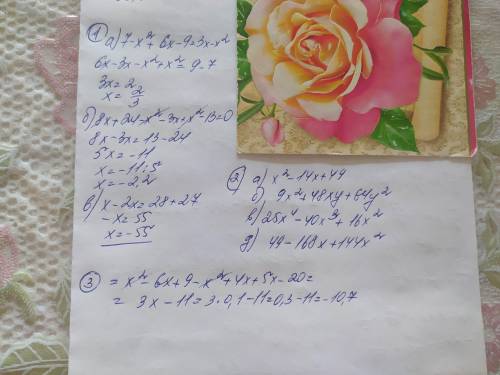 ① а) 7-x²+6x-9=3x-x²
6x-3x-x²+x²=9-7
3x=2
x=2/3
б) 8x+24-x²-3x+x²-13=0
8x-3x=13-24
5x=-11
x=-11:5
x=-2,2
в) x-2x=28+27
-x=55
x=-55
② а) x²-14x+49
б) 9x²+48xy+64y²
в) 25x⁴-40x³+16x²
д) 49-168x+144x²
③ = x²-6x+9-x²+4x+5x-20=
= 3x-11=3·0,1-11=0,3-11=-10,7